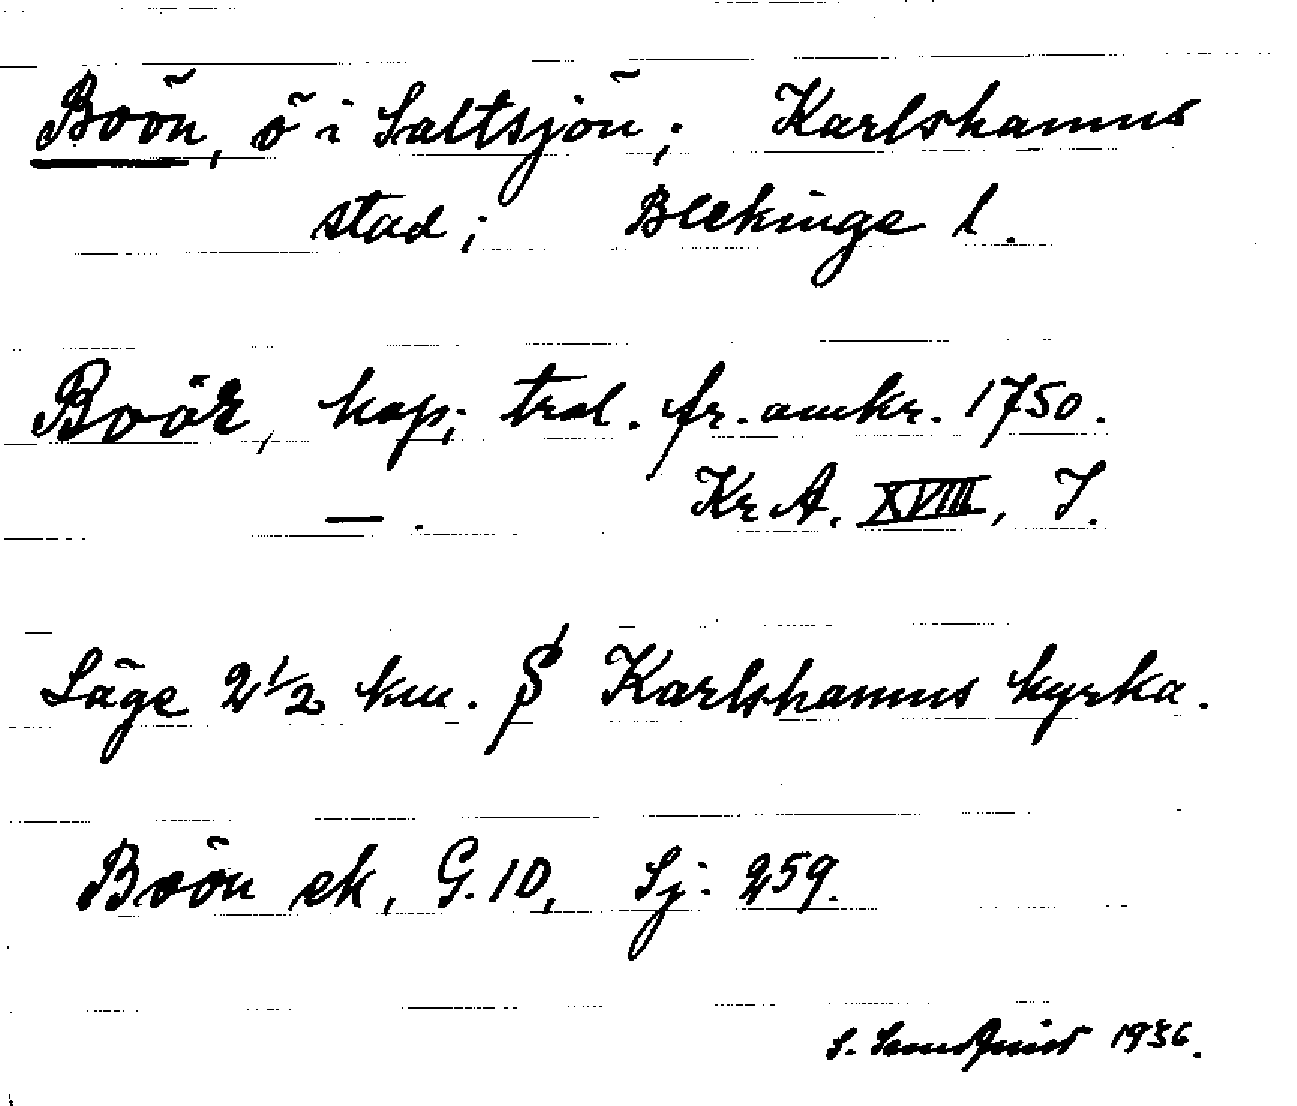 Boön, ö i Saltsjön; Karlshamns
stad; Blekinge l.
Boör, kop; trol. fr. omkr. 1750.
— . Kr A. XVIII, I.
Läge 2 1/2 km. S Karlshamns kyrka.
Boön ek, G. 10, Sj: 259.
S. Sundquist 1936.